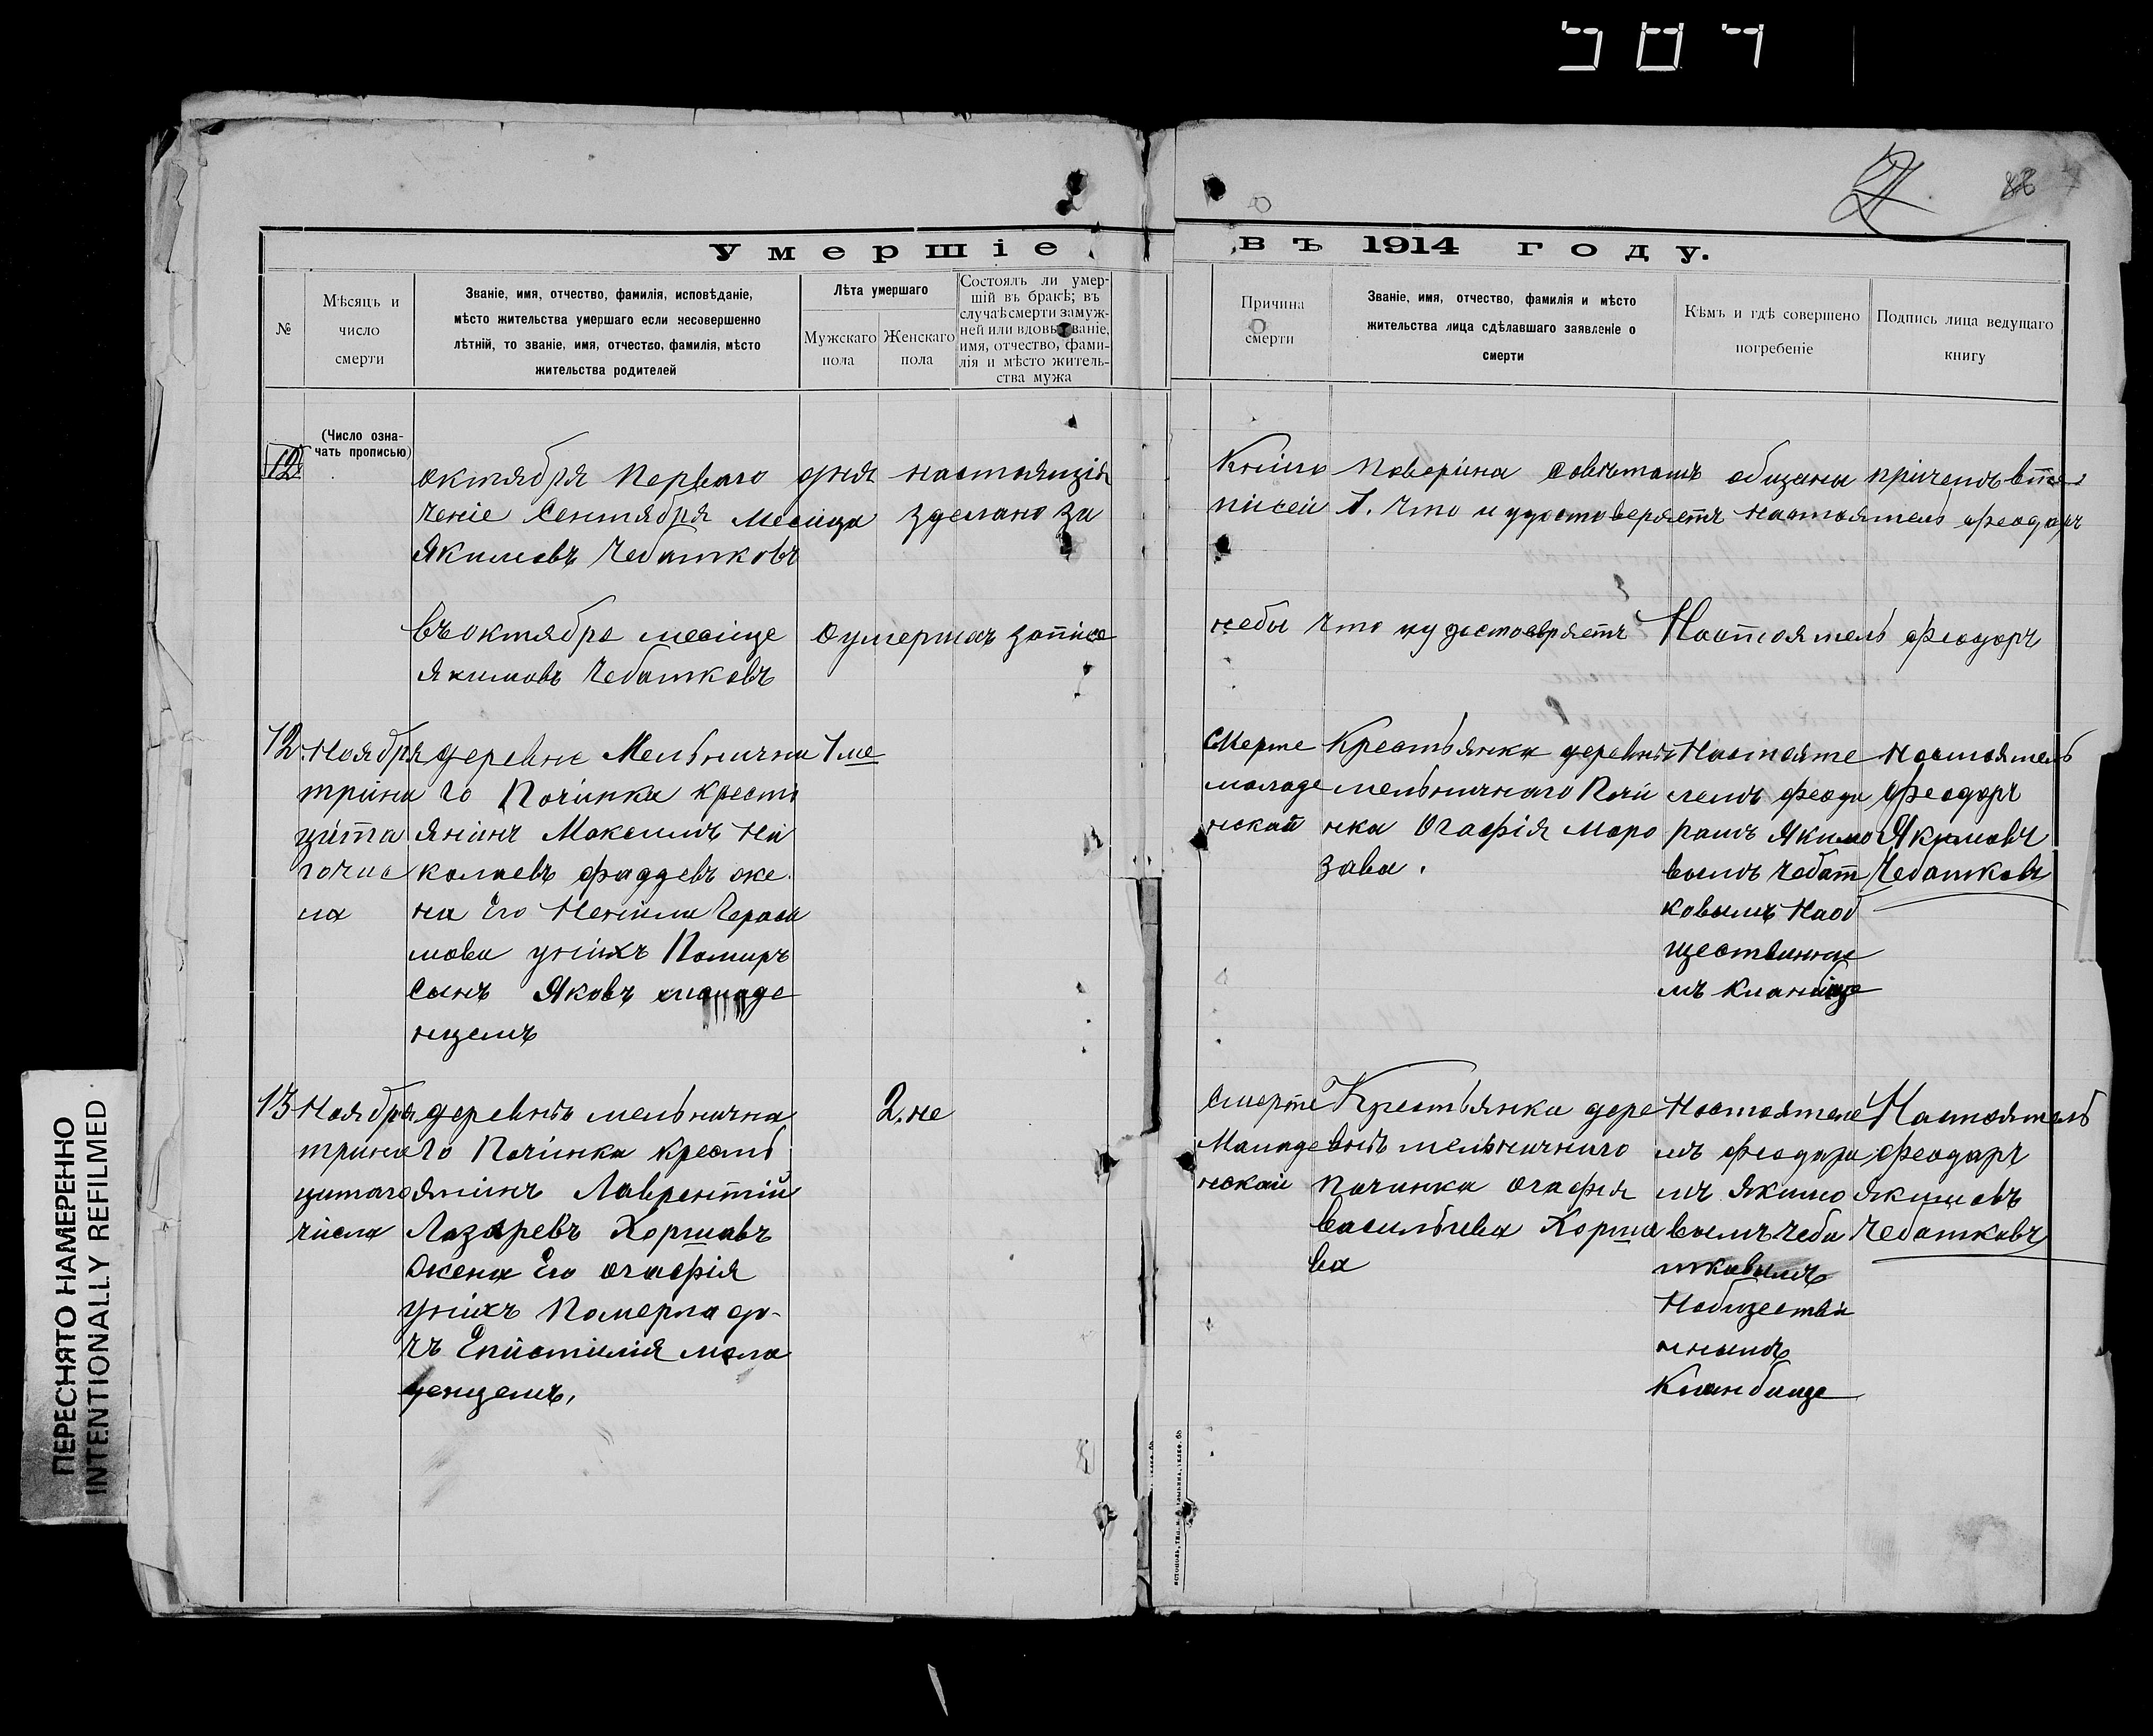 587
27
86
Умершіе
въ 1914 году.
№
Мѣсяцъ и
число
смерти
Званіе, имя, отчество, фамилія, исповѣданіе,
мѣсто жительства умершаго если несовершенно
лѣтній, то званіе, имя, отчество, фамилія, мѣсто
жительства родителей
Лѣта умершаго
Мужскаго
пола
Женскаго
пола
Состоялъ ли умер-
шій въ бракѣ; въ
случаѣ смерти замуж-
ней или вдовы званіе,
имя, отчество, фами-
лія и мѣсто житель-
ства мужа
Причина
смерти
Званіе, имя, отчество, фамилія и мѣсто
жительства лица сдѣлавшаго заявленіе о
смерти
Кѣмъ и гдѣ совершено
погребеніе
Подпись лица ведущаго
книгу
(Число озна-
чать прописью)
12
октября Перваго дня настоящія Книга поверина совѣтомъ общины причемъ втѣ
ченіе Сентября Месяца зделано за писей 1. что и удостоверяетъ настоятель феодоръ
Якимовъ Чебатковъ
въ октябре месяце оумершихъ записе небы что иудостовѣряетъ Настоятель феодоръ
Якимовъ Чебатковъ
12.
Ноября
трина
цата
гочис
ла
деревне Мельнична
го Починка крест
янинъ Максимъ Ни
колаевъ фаддевъ же
на Его Ненила Гераси
мова унихъ Помиръ
Сынъ Яковъ младе
нцемъ
1 ме
Смерте
младе
нской
Крестьянка деревнѣ
мельничнаго Почи
нка Огафія Моро
зава.
Настояте
лемъ феодо
ромъ Якимо
вымъ Чебат
ковымъ Наоб
щественно
мъ кланбище
Настоятель
феодоръ
Якимовъ
Чебатковъ
13
Ноября
трина
цатаго
числа
деревнѣ мельнична
го Починка крестъ
янинъ Лаврентій
Лазаревъ Хоршавъ
Жена Его огафія
Унихъ Померла до-
чъ Епистимія мла
денцемъ,
2. не
Смерте
Младе
нскай
Крестьянка дере
внѣ мельничнаго
Починка огафия
васильива Хорша
ва
Настоятеле
мъ феодоро
мъ якимо
вымъ Чеба
тковымъ
Наобществи
нномъ
Кланбище
Настоятель
феодаръ
якимовъ
Чебатковъ
ПЕРЕСНЯТО НАМЕРЕННО
INTENTIONALLY REFILMED